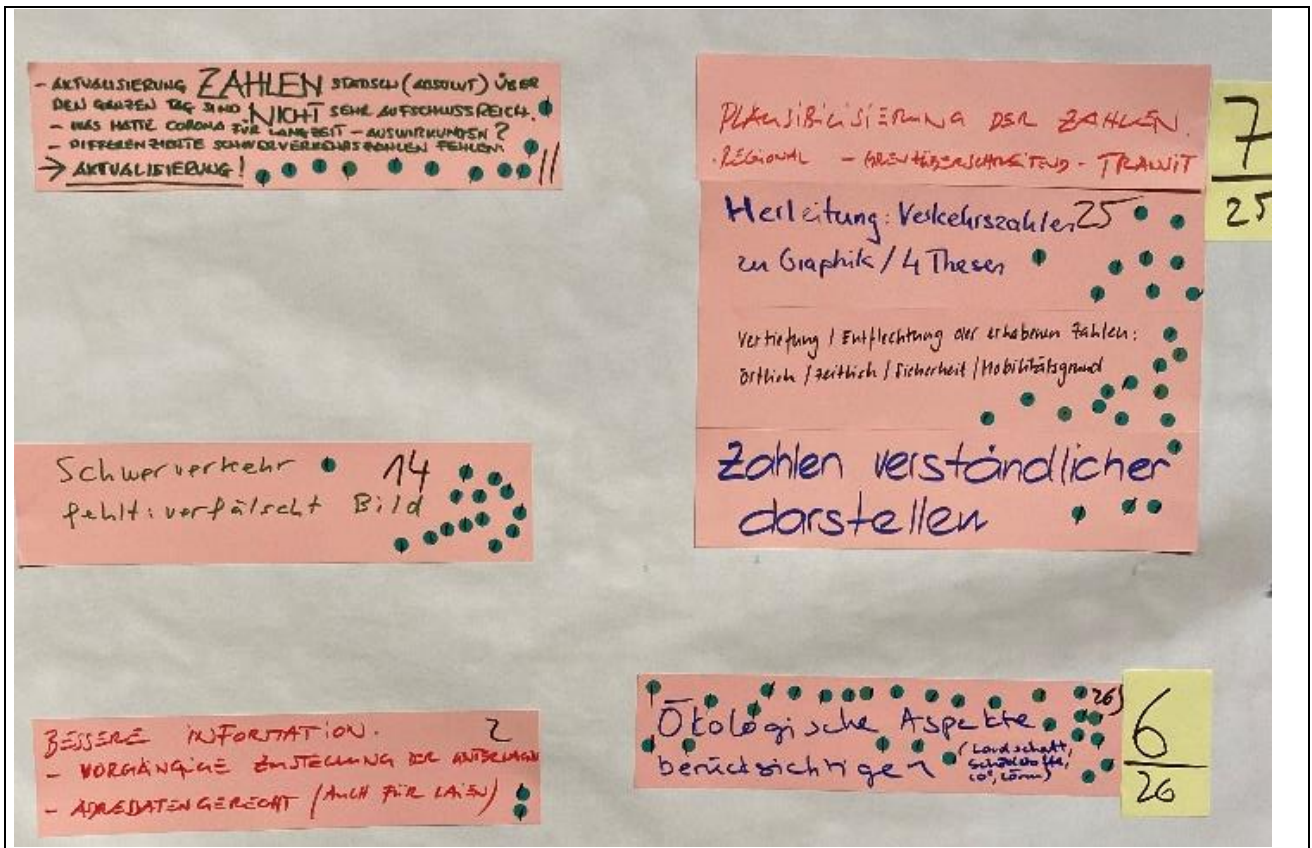 - AKTUALISIERUNG ZAHLEN STATISCH (ABSOLUT) ÜBER
DEN GANZEN TAG SIND NICHT SEHR AUFSCHLUSSREICH.
- WAS HATTE CORONA FÜR LANGZEIT-AUSWIRKUNGEN?
- DIFFERENZIERTE SCHWERVERKEHRSZAHLEN FEHLEN.
→ AKTUALISIERUNG! 11
Schwerverkehr 14
fehlt: verfälscht Bild
BESSERE INFORMATION. 2
- VORGÄNGIGE ZUSTELLUNG DER UNTERLAGEN
- (AUCH FÜR LAIEN)
PLAUSIBILISIERUNG DER ZAHLEN.
· REGIONAL - GRENZÜBERSCHREITEND - TRANSIT
7
25
Herleitung: Verkehrszahlen 25
zu Graphik / 4 Thesen
Vertiefung / Entflechtung der erhobenen Zahlen:
örtlich / zeitlich / Sicherheit / Mobilitätsgrund
Zahlen verständlicher
darstellen
26
Ökologische Aspekte
berücksichtigen (Landschaft,
Schadstoffe,
Lärm)
6
26